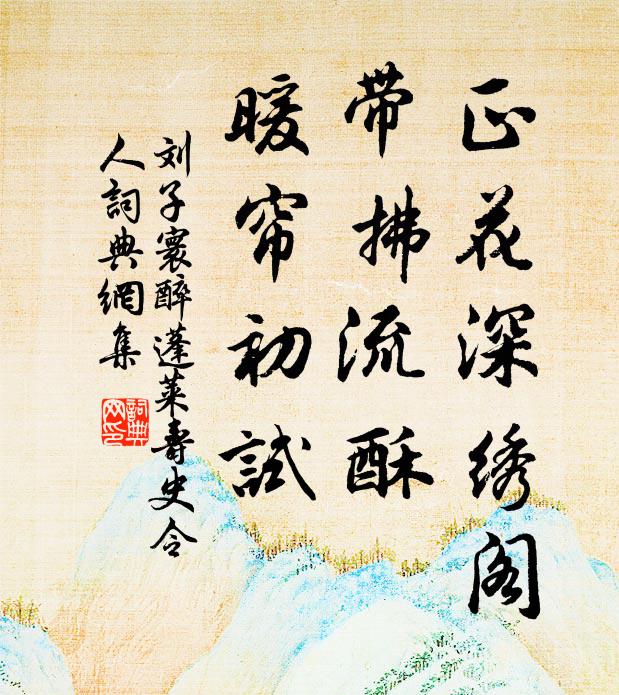 正花深绣阁
带拂流酥
暖帘初試
刘子寰醉蓬莱寿史令
人詞典網集
詞典
网印